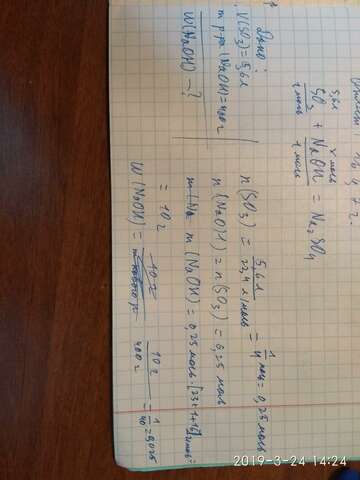 Дано:
V(SO₃) = 5,6 л
m р-ра (NaOH) = 400 г
W(NaOH) - ?
5,6 л x моль
SO₃ + NaOH = Na₂SO₄
1 моль 1 моль
n(SO₃) = 5,6 л / 22,4 л/моль = 1/4 моль = 0,25 моль
n(NaOH) = n(SO₃) = 0,25 моль
m(Na m(NaOH) = 0,25 моль · (23+1+16) г/моль =
= 10 г
W(NaOH) = 10 г / 10 г / 400 г = 1/40 = 0,025
2019-3-24 14:24